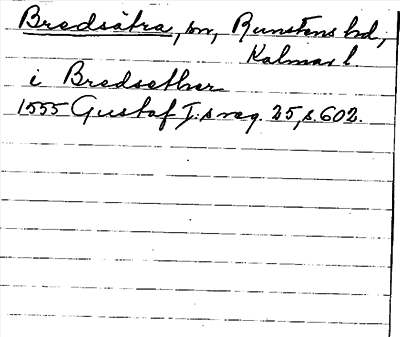 Bredsätra, sn, Runstens hd,
Kalmar l.
i Bredsether
1555 Gustaf I:s reg. 25, s. 602.